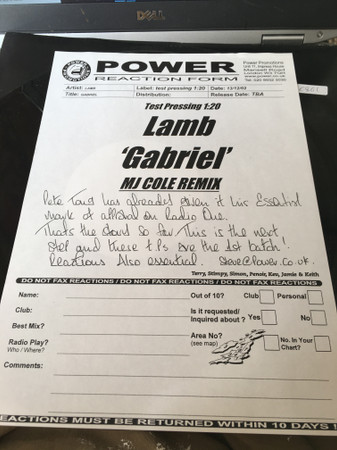 DELL
POWER
REACTION FORM
Power Promotions
Artist: LAMB
Label: test pressing 1:20
Date: 13/12/03
Title: GABRIEL
Distribution:
Release Date: TBA
Test Pressing 1:20
Lamb
'Gabriel'
MJ COLE REMIX
Pete Tong has already given it his Essential
mark of approval on Radio One.
That's the story so far. This is the next
step and these t.p.s are the 1st batch!
Reactions Also essential. steve@power.co.uk.
Terry, Stimpy, Simon, Pensix, Ken, Jamie & Keith
DO NOT FAX REACTIONS / DO NOT FAX REACTIONS / DO NOT FAX REACTIONS
Name:
Out of 10?
Club
Personal
Club:
Is it requested/
inquired about ?
Yes
No
Best Mix?
Radio Play?
Who / Where?
Area No?
(see map)
No. In Your
Chart?
Comments:
EACTIONS MUST BE RETURNED WITHIN 10 DAYS !